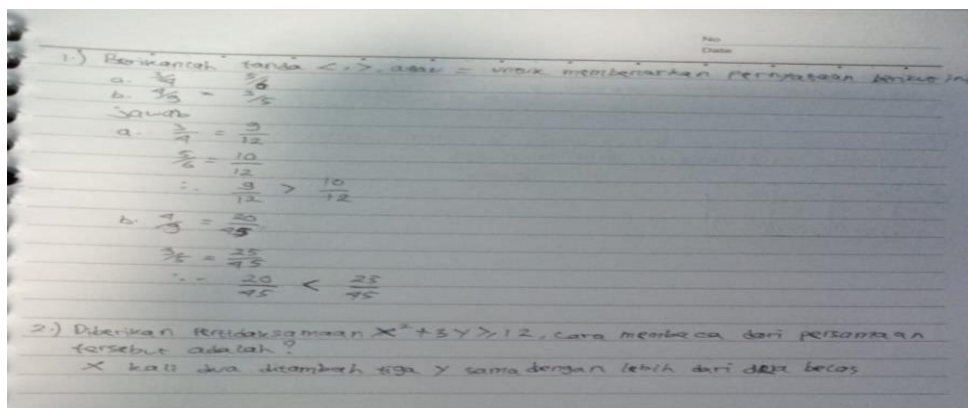 No
Date
1.) Berikanlah tanda <, >, atau = untuk membenarkan pernyataan berikut ini
a. 3/4 5/6
b. 4/9 - 3/5
Jawab
a. 3/4 = 9/12
5/6 = 10/12
∴ 9/12 > 10/12
b. 4/9 = 20/45
3/5 = 25/45
∴ 20/45 < 25/45
2.) Diberikan pertidaksamaan X² + 3y ≥ 12, cara membaca dari persamaan
tersebut adalah?
X kali dua ditambah tiga y sama dengan lebih dari dua belas